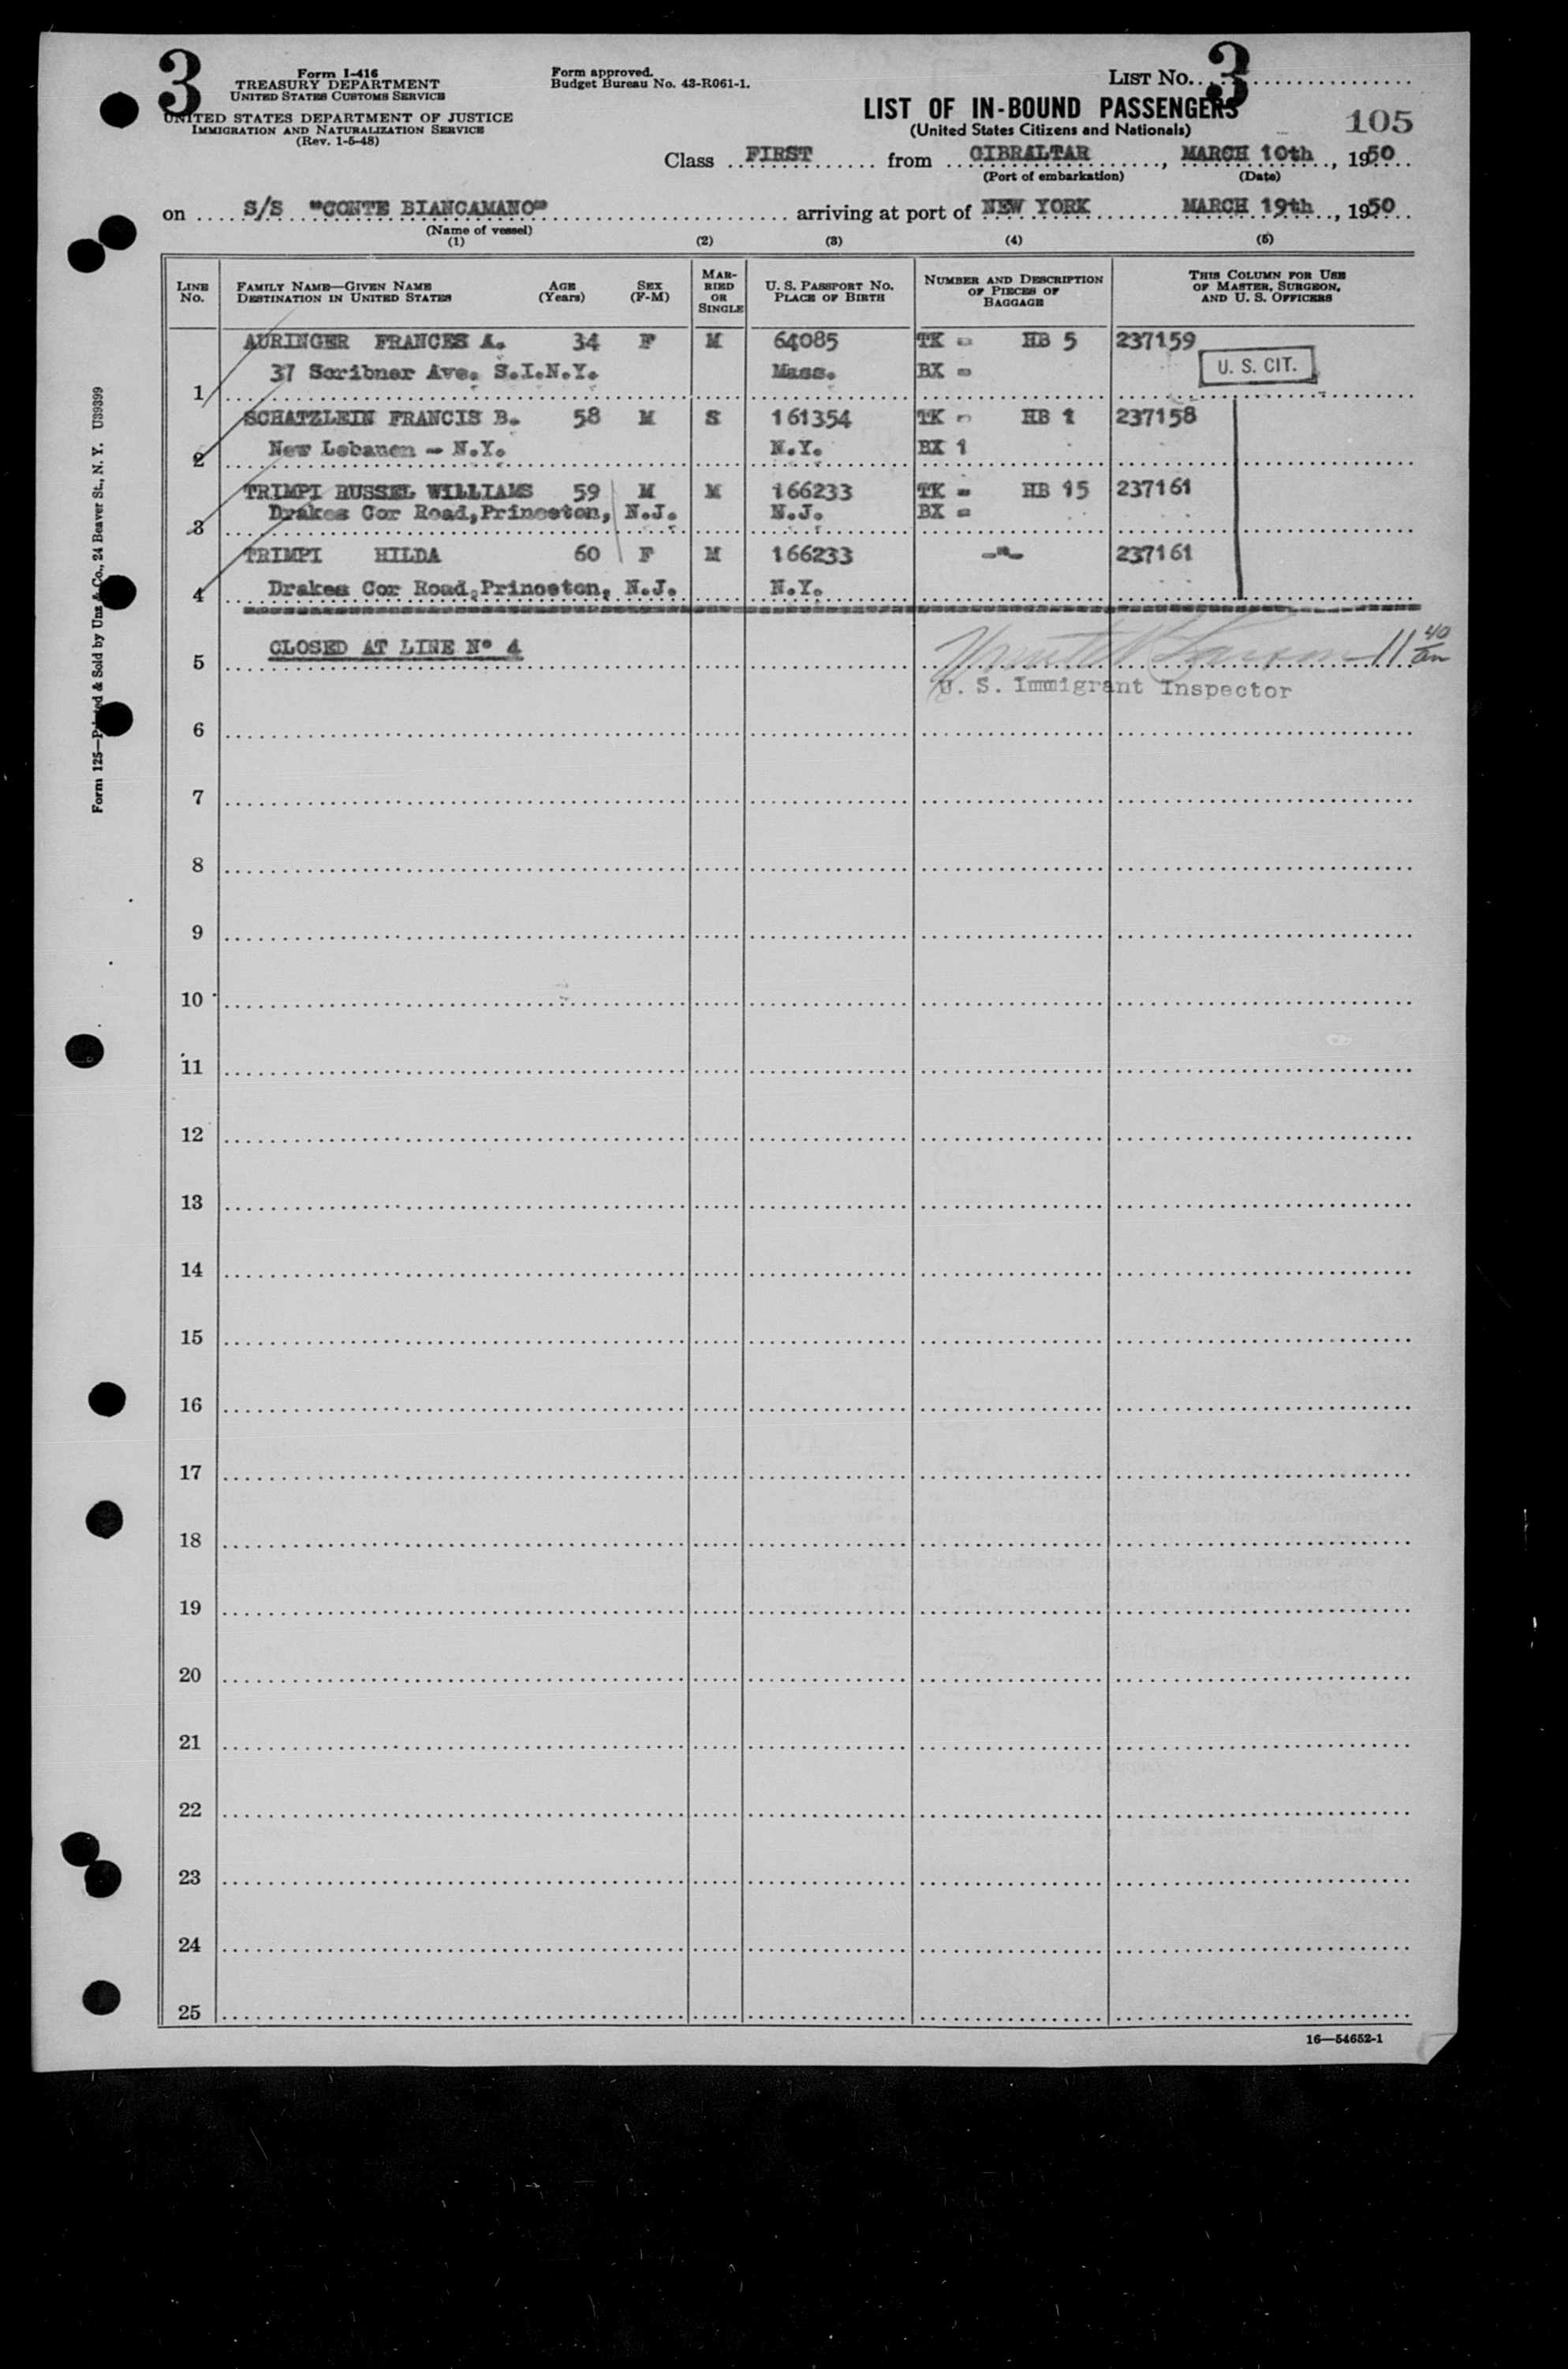 3
Form I-416
TREASURY DEPARTMENT
UNITED STATES CUSTOMS SERVICE
UNITED STATES DEPARTMENT OF JUSTICE
IMMIGRATION AND NATURALIZATION SERVICE
(Rev. 1-5-48)
Form approved.
Budget Bureau No. 43-R061-1.
LIST NO. 3
LIST OF IN-BOUND PASSENGERS
(United States Citizens and Nationals)
105
Class FIRST from GIBRALTAR, MARCH 10th, 1950
(Port of embarkation) (Date)
on S/S "CONTE BIANCAMANO" arriving at port of NEW YORK MARCH 19th, 1950
(Name of vessel)
(1) (2) (3) (4) (5)
LINE NO. FAMILY NAME—GIVEN NAME DESTINATION IN UNITED STATES AGE (Years) SEX (F-M) MARRIED OR SINGLE U. S. PASSPORT NO. PLACE OF BIRTH NUMBER AND DESCRIPTION OF PIECES OF BAGGAGE THIS COLUMN FOR USE OF MASTER, SURGEON, AND U. S. OFFICERS
AURINGER FRANCES A. 34 F M 64085 TK - HB 5 237159
1 37 Scribner Ave. S.I.N.Y. Mass. BX - U. S. CIT.
SCHATZLEIN FRANCIS B. 58 M S 161354 TK - HB 1 237158
2 New Lebanon - N.Y. N.Y. BX 1
TRIMPI RUSSEL WILLIAMS 59 M M 166233 TK - HB 15 237161
3 Drakes Cor Road,Princeton, N.J. N.J. BX -
TRIMPI HILDA 60 F M 166233 -"- 237161
4 Drakes Cor Road,Princeton, N.J. N.Y.
5 CLOSED AT LINE Nº 4 11 40 am
U. S. Immigrant Inspector
6
7
8
9
10
11
12
13
14
15
16
17
18
19
20
21
22
23
24
25
16—54652-1
Form 125—Printed & Sold by Unz & Co., 24 Beaver St., N. Y. U39399